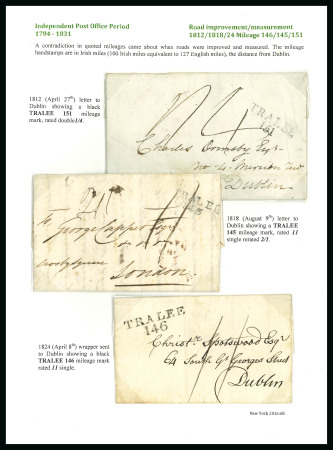 Independent Post Office Period
1784 - 1831
Road improvement/measurement
1812/1818/24 Mileage 146/145/151
A contradiction in quoted mileages came about when roads were improved and measured. The mileage
handstamps are in Irish miles (100 Irish miles equivalent to 127 English miles), the distance from Dublin.
1812 (April 27th) letter
to Dublin showing a
black TRALEE 151 mileage
mark, rated double1/4.
TRALEE
151
Charles Ormsby Esqr
No. 4 Merrion
Dublin
1818 (August 9th) letter to
Dublin showing a TRALEE
145 mileage mark, rated 11
single rerated 2/1.
TRALEE
145
George Capper Esqr
Crosby Square
London
1824 (April 8th) wrapper sent
to Dublin showing a black
TRALEE 146 mileage mark
rated 11 single.
TRALEE
146
Christr Spotswood Esqr
64 South Gt Georges Street
Dublin
New York 2016-68